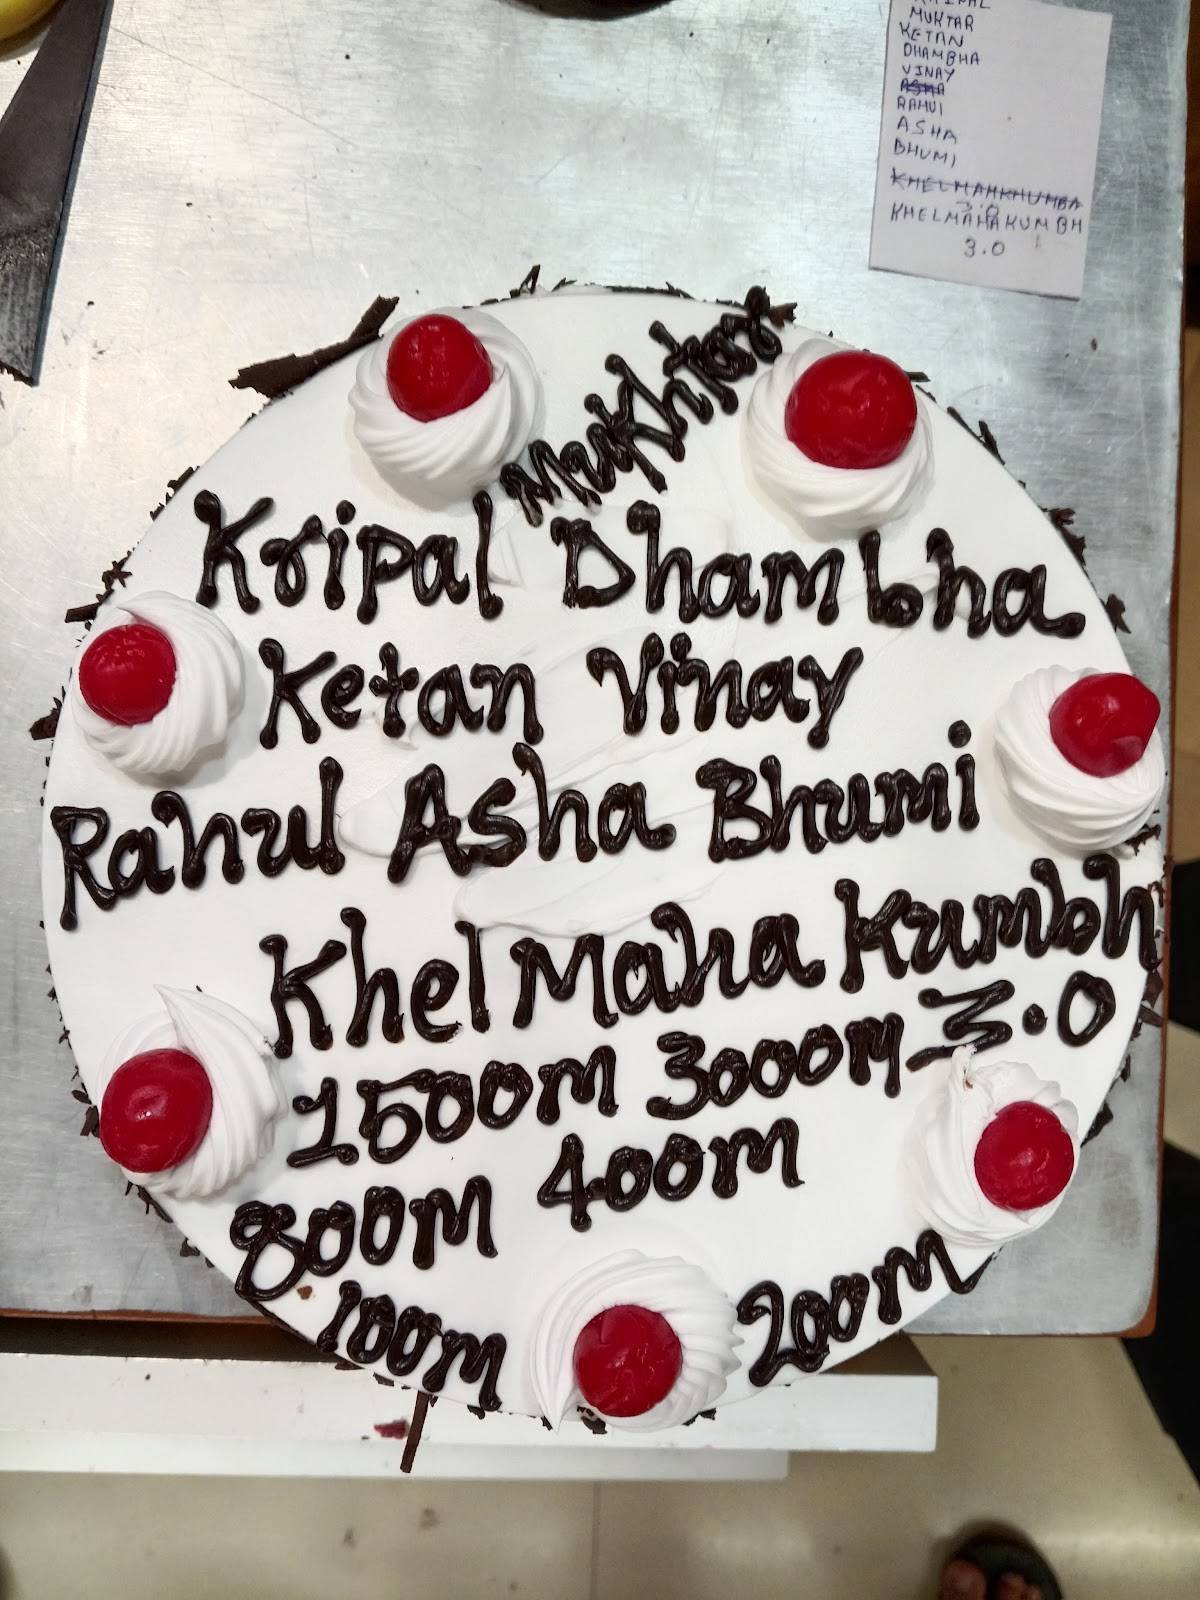 MUKTAR
KETAN
DHAMBHA
VINAY
RAHUL
ASHA
BHUMI
KHELMAHKHUMBA
3.0
KHELMAHAKUMBH
3.0
Mukhtar
Kripal Dhambha
Ketan Vinay
Rahul Asha Bhumi
Khel Maha Kumbh
1500m 3000m 3.0
800m 400m
100m 200m